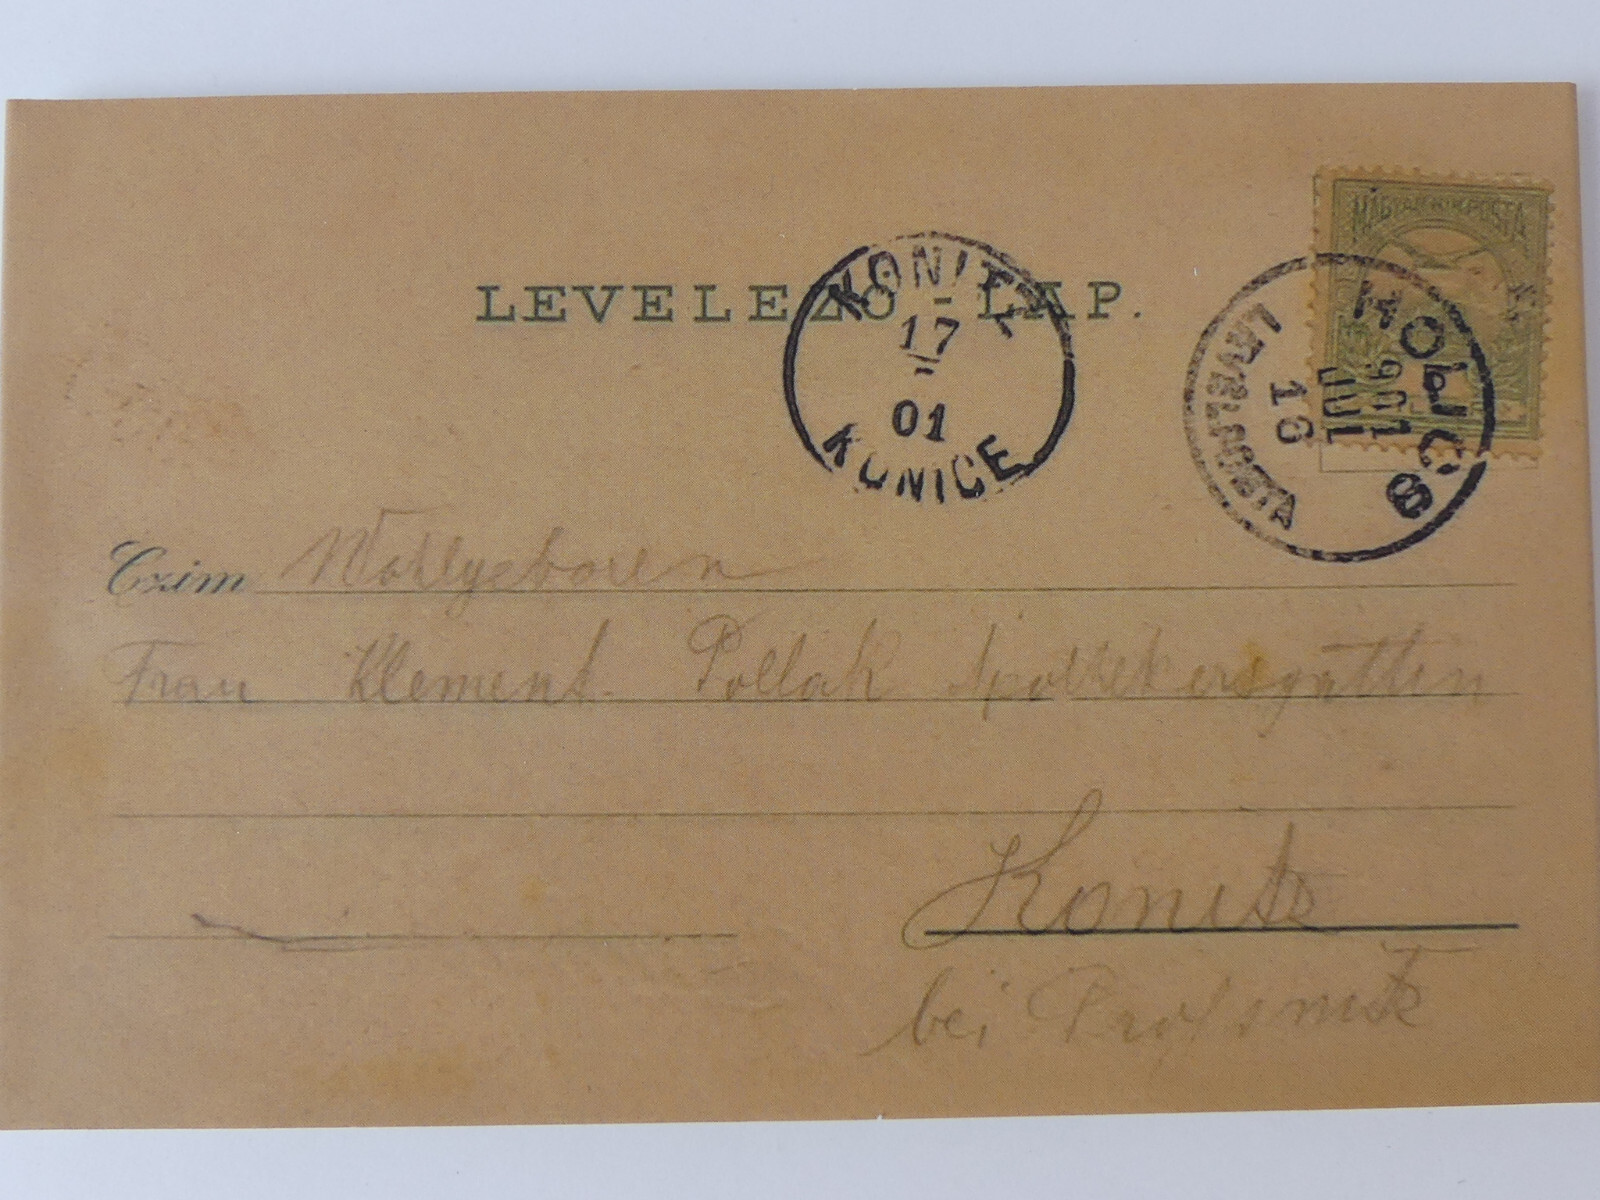 MAGYAR KIR. POSTA
LEVELEZŐ - LAP.
KONITZ
17
7
01
KONICE
HOLICS
901
JUL
16
Czim Wohlgeboren
Frau Klement. Pollak Apothekersgattin
Konitz
bei Prossnitz